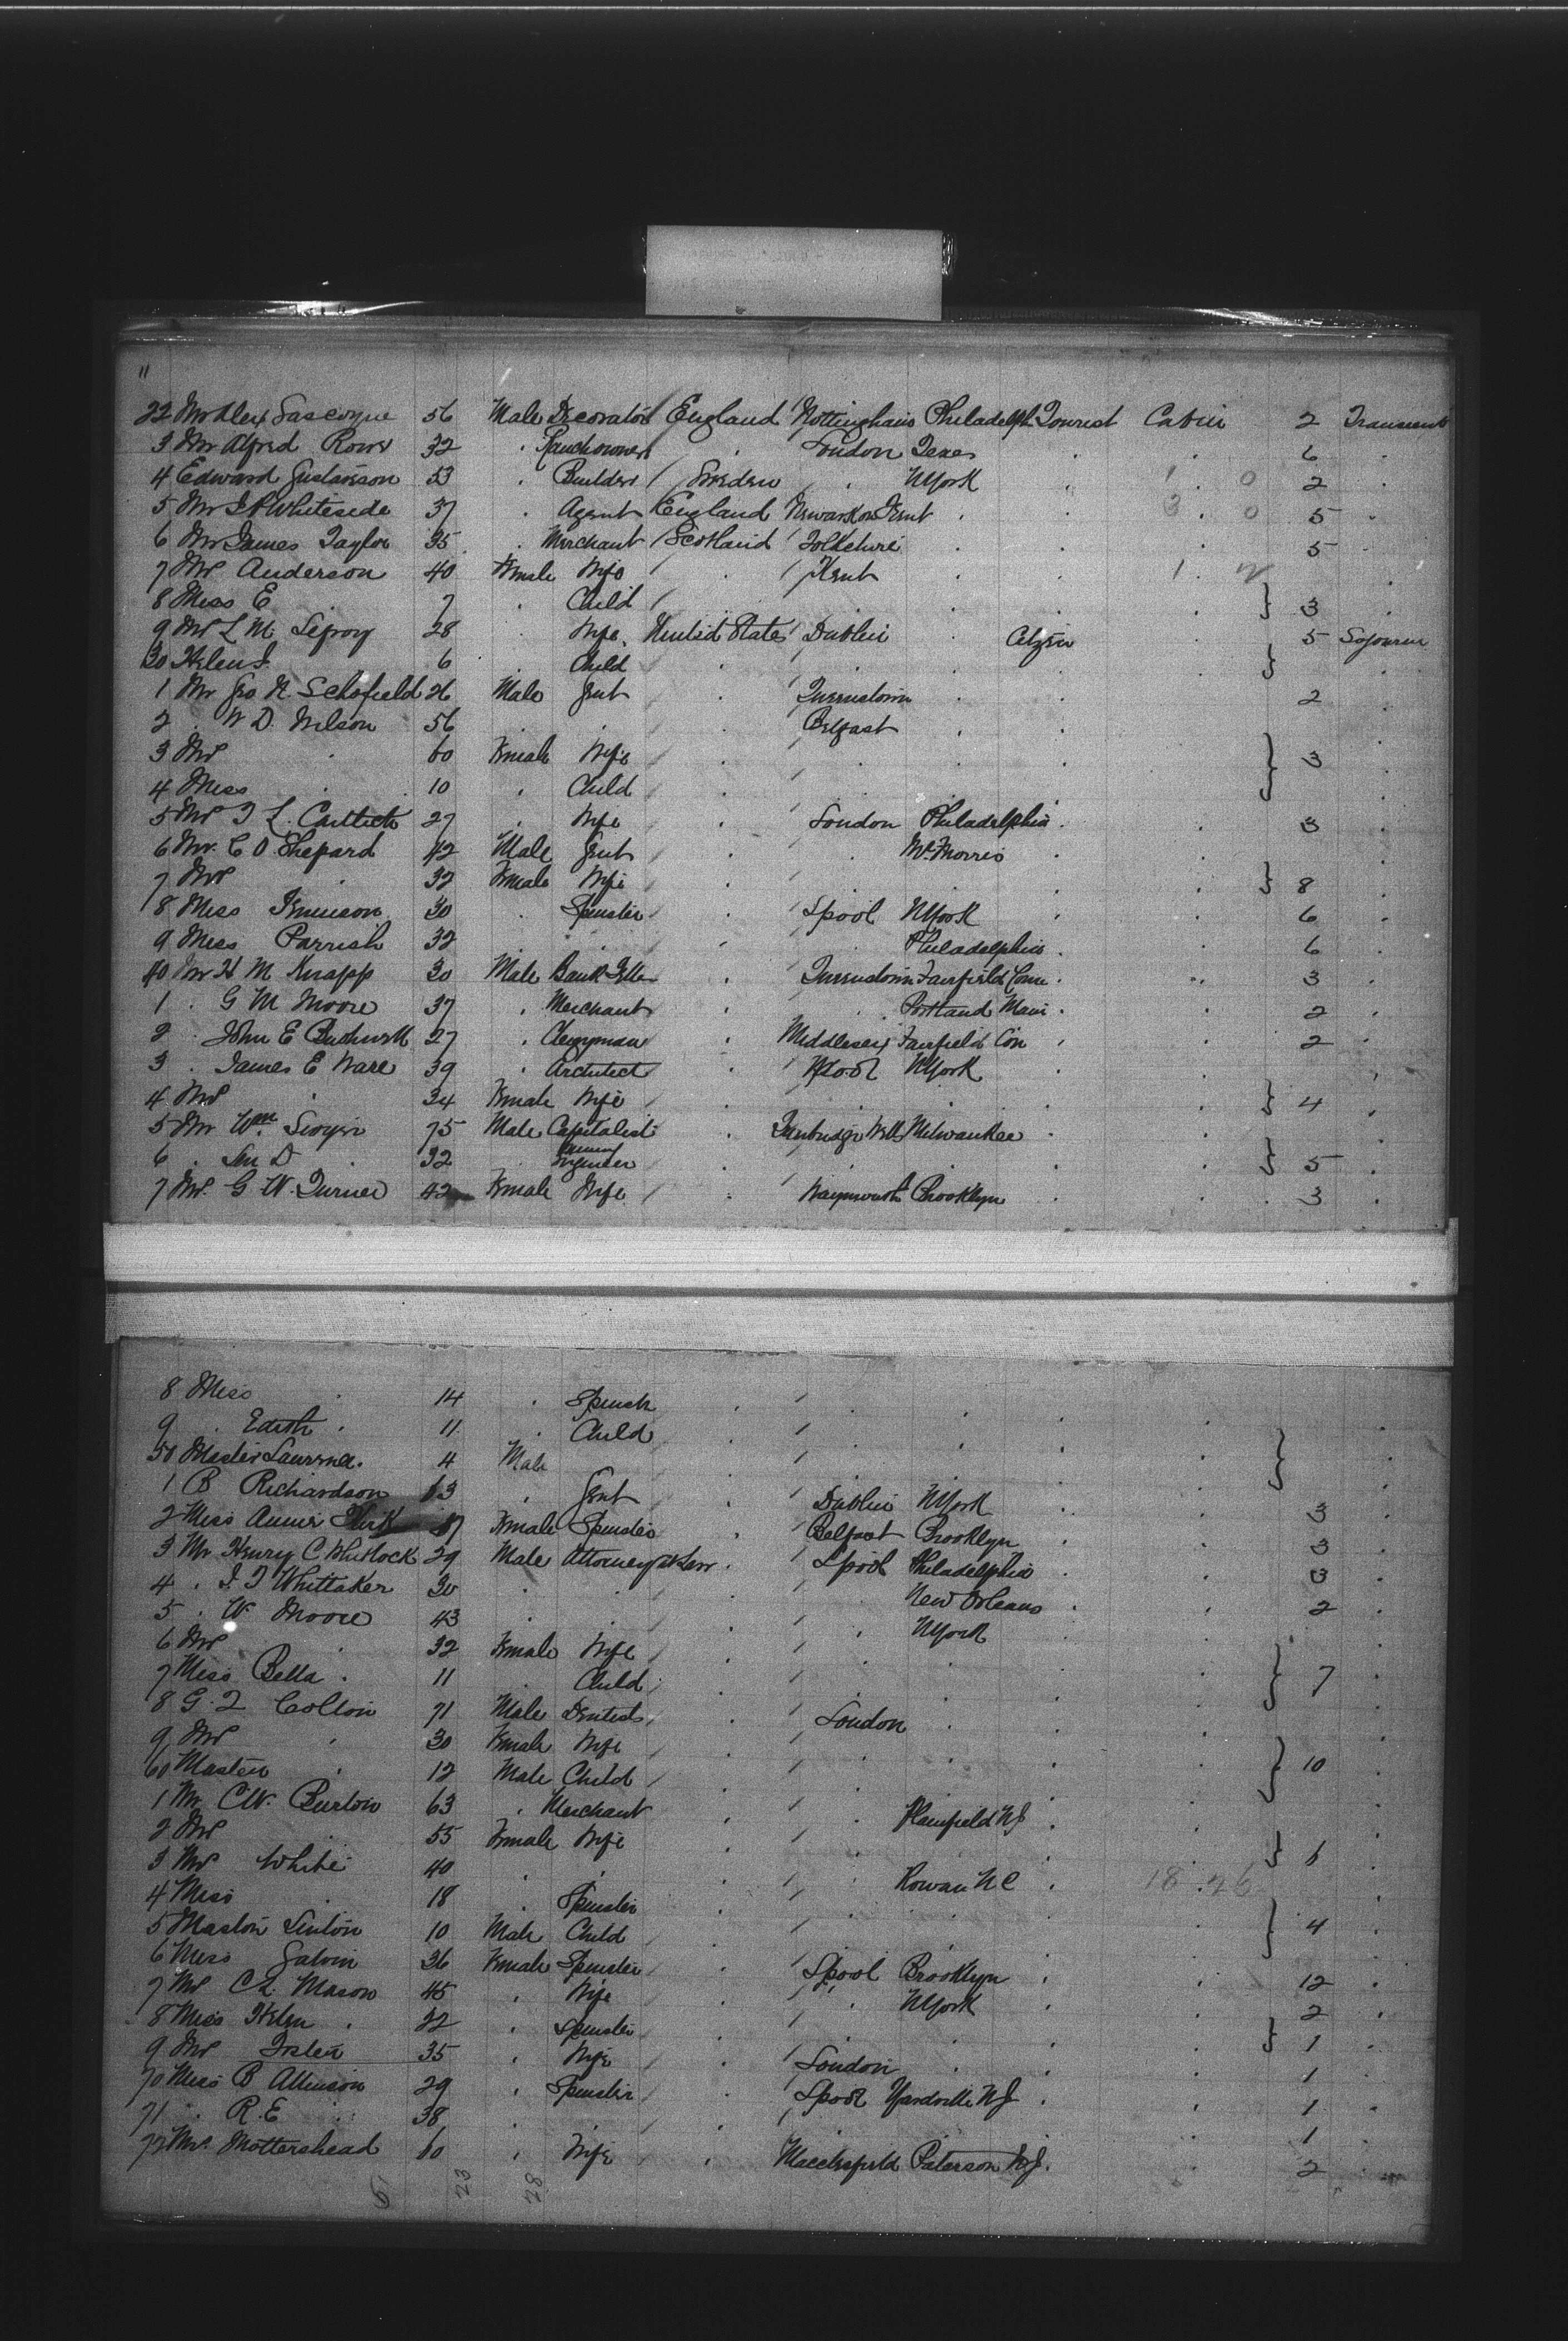 "
22 Mr Alex Gascoyne 56 Male Decorator England Nottingham Philadelph Tourist Cabin 2 Transient
3 Mr Alfred Rowe 32 " Ranchowner London Texas " " 6 "
4 Edward Gustavsson 53 " Builder Sweden " NYork " 1 . 0 2 "
5 Mr Whiteside 37 " Agent England Newark on Trent " " 3 . 0 5 "
6 Mr James Taylor 35 " Merchant Scotland " " 5
7 Mrs Anderson 40 Female Wife " Kent " " 1 .
8 Miss E 7 " Child " " } 3
9 Mrs L M Lefroy 28 " Wife United States Dublin " Citizen 5 Sojourn
30 Helen J. 6 " Child " " " }
1 Mr Geo N Schofield 26 Male Gent " Queenstown " " 2 "
2 " W D. Wilson 56 " " " Belfast " "
3 Mrs " 60 Female Wife " " " " } 3 "
4 Miss " 10 " Child " " " "
5 Mrs 27 " Wife " London Philadelphia " " 3
6 Mr. C O Shepard 42 Male Gent " " Mt. Morris "
7 Mrs " 32 Female Wife " " " " } 8 "
8 Miss 30 " Spinster " Lpool NYork " " 6 "
9 Miss Parrish 32 " " " " Philadelphia " " 6 "
40 Mr H M Knapp 30 Male Bank Teller " Queenstown Fairfield Conn " " 3 "
1 " G M Moore 37 " Merchant " " Portland Main " " 2 "
2 " John E Bushnell 27 " Clergyman " Middlesex Fairfield Con " " 2 "
3 " James E Ware 39 " Architect " Lpool NYork " "
4 Mrs " 34 Female Wife " " " " } 4 "
5 Mr Wm. 75 Male Capitalist " Tunbridge Wells Milwaukee "
6 " D " 32 " Mining Engineer " " " } 5 "
7 Mrs. G W. Turner 42 Female Wife " Brooklyn " " 3 "
8 Miss " 14 " Spinstr " " "
9 " Edith " 11 " Child " " " "
50 Master Lawrence " 4 Male " " " " }
1 B Richardson 63 " Gent " Dublin NYork " " 3 "
2 Miss Annie Female Spinster " Belfast Brooklyn " " 3 "
3 Mr Henry C Whitlock 29 Male Attorney at Law " Lpool Philadelphia " " 3 "
4 " Whittaker 30 " " " " New Orleans " " 2 "
5 " W. Moore 43 " " " " NYork "
6 Mrs " 32 Female Wife " " " "
7 Miss Bella " 11 " Child " " " " } 7 "
8 G. Q Colton 71 Male Dentist " London " "
9 Mrs " 30 Female Wife " " " "
60 Master " 12 Male Child " " " " } 10 "
1 Mr C W. Burton 63 " Merchant " " Plainfield NJ "
2 Mrs " 55 Female Wife " " " " }
3 Mrs White 40 " " " " Rowan N C " 18 .
4 Miss " 18 " Spinster " " " "
5 Master Linton 10 Male Child " " " " } 4 "
6 Miss Galvin 36 Female Spinster " Lpool Brooklyn " " 12 "
7 Mrs Mason 45 " Wife " " NYork " " 2 "
8 Miss Helen " 22 " Spinster " " " } 1 "
9 Mrs 35 " Wife " London " " 1
70 Miss B Atkinson 29 " Spinster " Lpool Yardville NJ " " 1 "
71 " R. E " 38 " " " " " 1
72 Mrs. Mottershead 60 " Wife " Macclesfield Paterson NJ. " 2
23 28